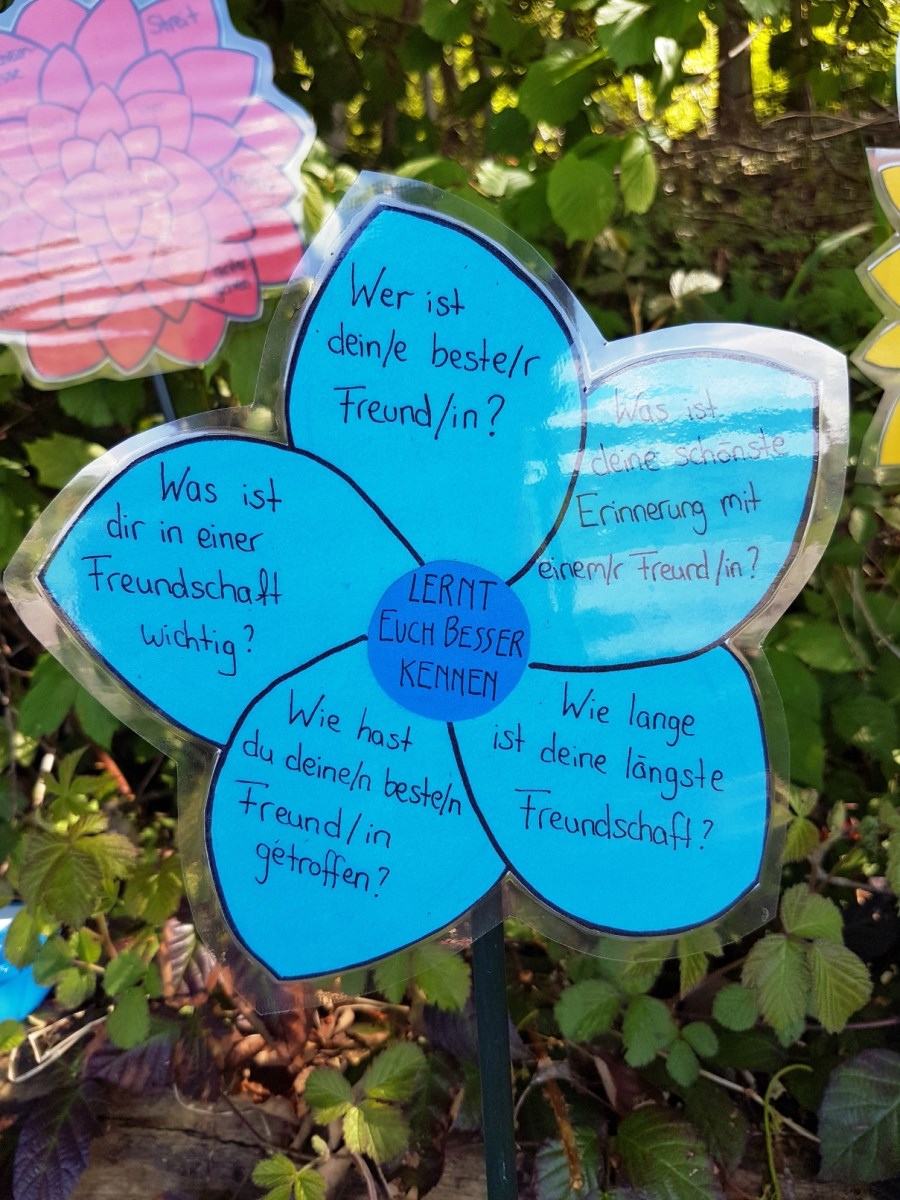 Streit
Wer ist
dein/e beste/r
Freund/in?
Was ist
deine schönste
Erinnerung mit
einem/r Freund/in?
Was ist
dir in einer
Freundschaft
wichtig?
LERNT
EUCH BESSER
KENNEN
Wie hast
du deine/n beste/n
Freund/in
getroffen?
Wie lange
ist deine längste
Freundschaft?